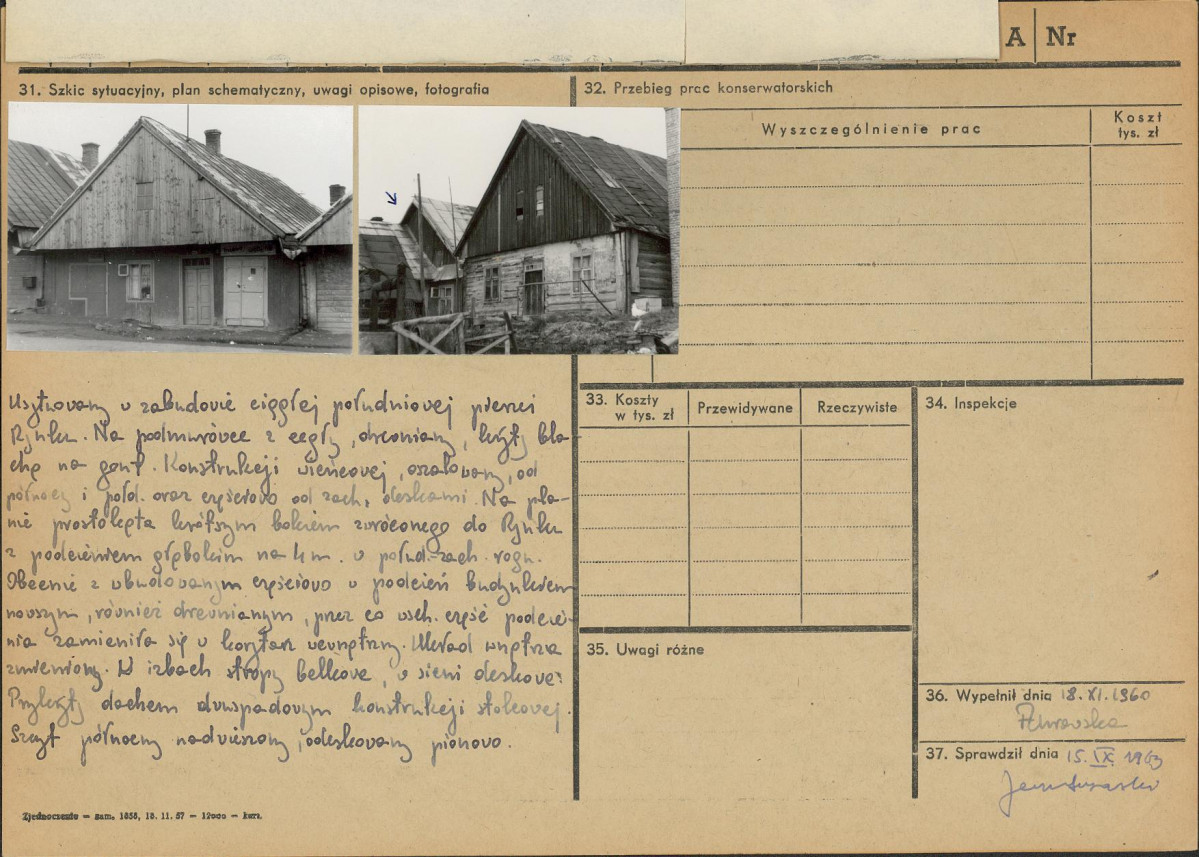 A Nr
31. Szkic sytuacyjny, plan schematyczny, uwagi opisowe, fotografia
32. Przebieg prac konserwatorskich
Wyszczególnienie prac
Koszt
tys. zł
Usytuowany w zabudowie ciągłej południowej pierzei
Rynku. Na podmurówce z cegły, drewniany, kryty bla-
chą na gont. Konstrukcji wieńcowej, oszalowany, od
północy i połd. oraz częściowo od zach, deskami. Na pla-
nie prostokąta krótszym bokiem zwróconego do Rynku
z podcieniem głębokim na 4 m. w połud-zach. rogu.
Obecnie z wbudowanym częściowo w podcień budynkiem
nowszym, również drewnianym, przez co wsch. część podcie-
nia zamieniła się w korytarz wewnętrzny. Układ wnętrza
zmieniony. W izbach stropy belkowe, w sieni deskowe.
Przykryty dachem dwuspadowym konstrukcji stolcowej.
Szczyt północny nadwieszony, odeskowany pionowo.
33. Koszty
w tys. zł
Przewidywane
Rzeczywiste
34. Inspekcje
35. Uwagi różne
36. Wypełnił dnia 18.XI.1960
37. Sprawdził dnia 15.IX.1963
Zjednoczenie — zam. 1858, 18. 11. 57 — 12000 — kart.